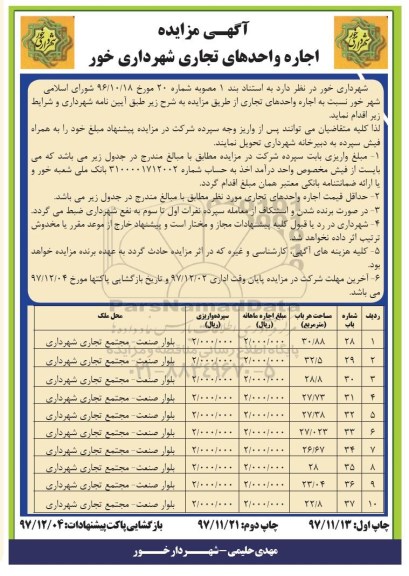 آگهـی مزایده
اجاره واحدهای تجاری شهرداری خور
شهرداری خور در نظر دارد به استناد بند ۱ مصوبه شماره ۲۰ مورخ ۹۶/۱۰/۱۸ شورای اسلامی
شهر خور نسبت به اجاره واحدهای تجاری از طریق مزایده به شرح زیر طبق آیین نامه شهرداری و شرایط
زیر اقدام نماید.
لذا کلیه متقاضیان می توانند پس از واریز وجه سپرده شرکت در مزایده پیشنهاد مبلغ خود را به همراه
فیش سپرده به دبیرخانه شهرداری تحویل نمایند.
۱- مبلغ واریزی بابت سپرده شرکت در مزایده مطابق با مبالغ مندرج در جدول زیر می باشد که می
بایست از فیش مخصوص واحد درآمد اخذ به حساب شماره ۳۱۰۰۰۰۱۷۱۲۰۰۲ بانک ملی شعبه خور و
یا ارائه ضمانتنامه بانکی معتبر همان مبلغ اقدام گردد.
۲- حداقل قیمت اجاره واحدهای تجاری مورد نظر مطابق با مبالغ مندرج در جدول زیر می باشد.
۳- در صورت برنده شدن و استنکاف از معامله سپرده نفرات اول تا سوم به نفع شهرداری ضبط می گردد.
۴- شهرداری در رد یا قبول کلیه پیشنهادات مجاز و مختار است و پیشنهاد خارج از موعد مقرر یا مخدوش
ترتیب اثر داده نخواهد شد.
۵- کلیه هزینه های آگهی، کارشناسی و غیره که در اثر مزایده حادث گردد به عهده برنده مزایده خواهد
بود.
۶- آخرین مهلت شرکت در مزایده پایان وقت اداری ۹۷/۱۲/۰۲ و تاریخ بازگشایی پاکتها مورخ ۹۷/۱۲/۰۴
می باشد.
ردیف شماره باب مساحت هر باب (مترمربع) مبلغ اجاره ماهانه (ریال) سپرده واریزی (ریال) محل ملک
۱ ۲۸ ۳۰/۸۸ ۲/۰۰۰/۰۰۰ ۲/۰۰۰/۰۰۰ بلوار صنعت- مجتمع تجاری شهرداری
۲ ۲۹ ۳۲/۵ ۲/۰۰۰/۰۰۰ ۲/۰۰۰/۰۰۰ بلوار صنعت- مجتمع تجاری شهرداری
۳ ۳۰ ۲۸/۸ ۲/۰۰۰/۰۰۰ ۲/۰۰۰/۰۰۰ بلوار صنعت- مجتمع تجاری شهرداری
۴ ۳۱ ۲۷/۷۳ ۲/۰۰۰/۰۰۰ ۲/۰۰۰/۰۰۰ بلوار صنعت- مجتمع تجاری شهرداری
۵ ۳۲ ۲۷/۳۸ ۲/۰۰۰/۰۰۰ ۲/۰۰۰/۰۰۰ بلوار صنعت- مجتمع تجاری شهرداری
۶ ۳۳ ۲۷/۰۲۳ ۲/۰۰۰/۰۰۰ ۲/۰۰۰/۰۰۰ بلوار صنعت- مجتمع تجاری شهرداری
۷ ۳۴ ۲۶/۶۷ ۲/۰۰۰/۰۰۰ ۲/۰۰۰/۰۰۰ بلوار صنعت- مجتمع تجاری شهرداری
۸ ۳۵ ۲۸ ۲/۰۰۰/۰۰۰ ۲/۰۰۰/۰۰۰ بلوار صنعت- مجتمع تجاری شهرداری
۹ ۳۶ ۲۳/۰۴ ۲/۰۰۰/۰۰۰ ۲/۰۰۰/۰۰۰ بلوار صنعت- مجتمع تجاری شهرداری
۱۰ ۳۷ ۲۲/۸ ۲/۰۰۰/۰۰۰ ۲/۰۰۰/۰۰۰ بلوار صنعت- مجتمع تجاری شهرداری
چاپ اول: ۹۷/۱۱/۱۳ چاپ دوم: ۹۷/۱۱/۲۱ بازگشایی پاکت پیشنهادات: ۹۷/۱۲/۰۴
مهدی حلیمی – شهـردار خـور
ParsNamadData
۰۲۱-۸۸۳۴۹۶۷۰-۵